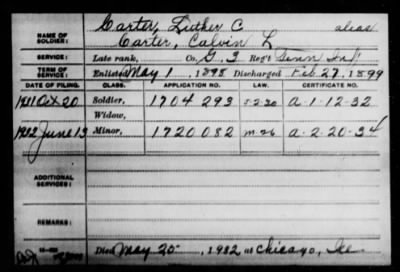 Carter, Luther C alias
NAME OF SOLDIER: Carter, Calvin L
SERVICE: Late rank, Co. G, 3 Reg't Tenn Inf
TERM OF SERVICE: Enlisted May 1, 1898 Discharged Feb. 27, 1899
DATE OF FILING. CLASS. APPLICATION NO. LAW. CERTIFICATE NO.
Oct 20 Soldier, 1704 293 A-1-12-32
Widow,
June 13 Minor, 1720 082 A-2-20-34
ADDITIONAL SERVICES:
REMARKS:
Died May 25, 1932 at Chicago, Ill